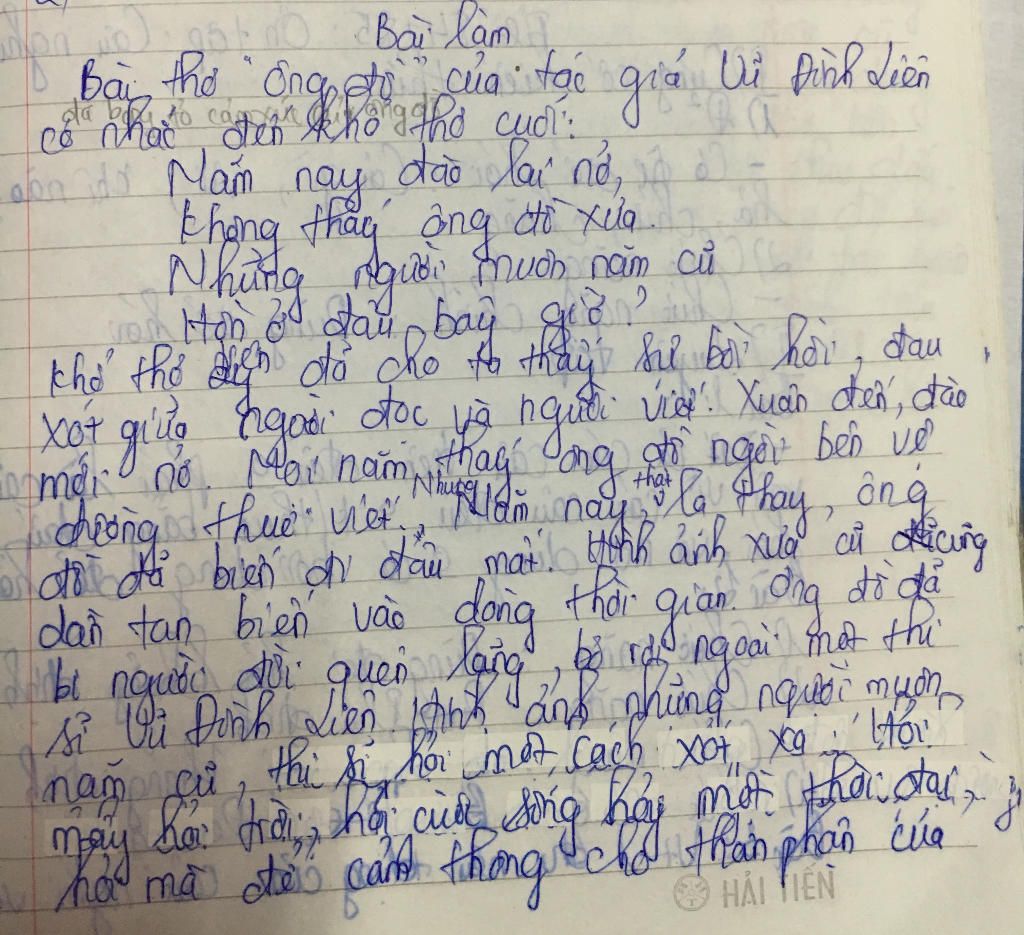 Bài làm
Bài thơ "ông đồ" của tác giả Vũ Đình Liên
đã bày tỏ cảm xúc
có nhắc đến khổ thơ cuối:
Năm nay đào lại nở,
Không thấy ông đồ xưa.
Những người muôn năm cũ
Hồn ở đâu bây giờ?
Khổ thơ đã cho ta thấy sự bồi hồi, đau
xót giữa người đọc và người viết. Xuân đến, đào
mới nở. Mọi năm thấy ông đồ ngồi bên vệ
đường thuê viết. Nhưng Năm nay, thật lạ thay, ông
đồ đã biến đi đâu mất. Hình ảnh xưa cũ cũng
dần tan biến vào dòng thời gian. Ông đồ đã
bị người đời quên lãng, bỏ rơi ngoài một thi
sĩ Vũ Đình Liên. Hình ảnh những người muôn
năm cũ, thi sĩ hỏi một cách xót xa: "Hỏi
mây hỏi trời, hỏi cuộc sống hay một thời đại,
hỏi mà để cảm thông cho thân phận của
HẢI TIẾN